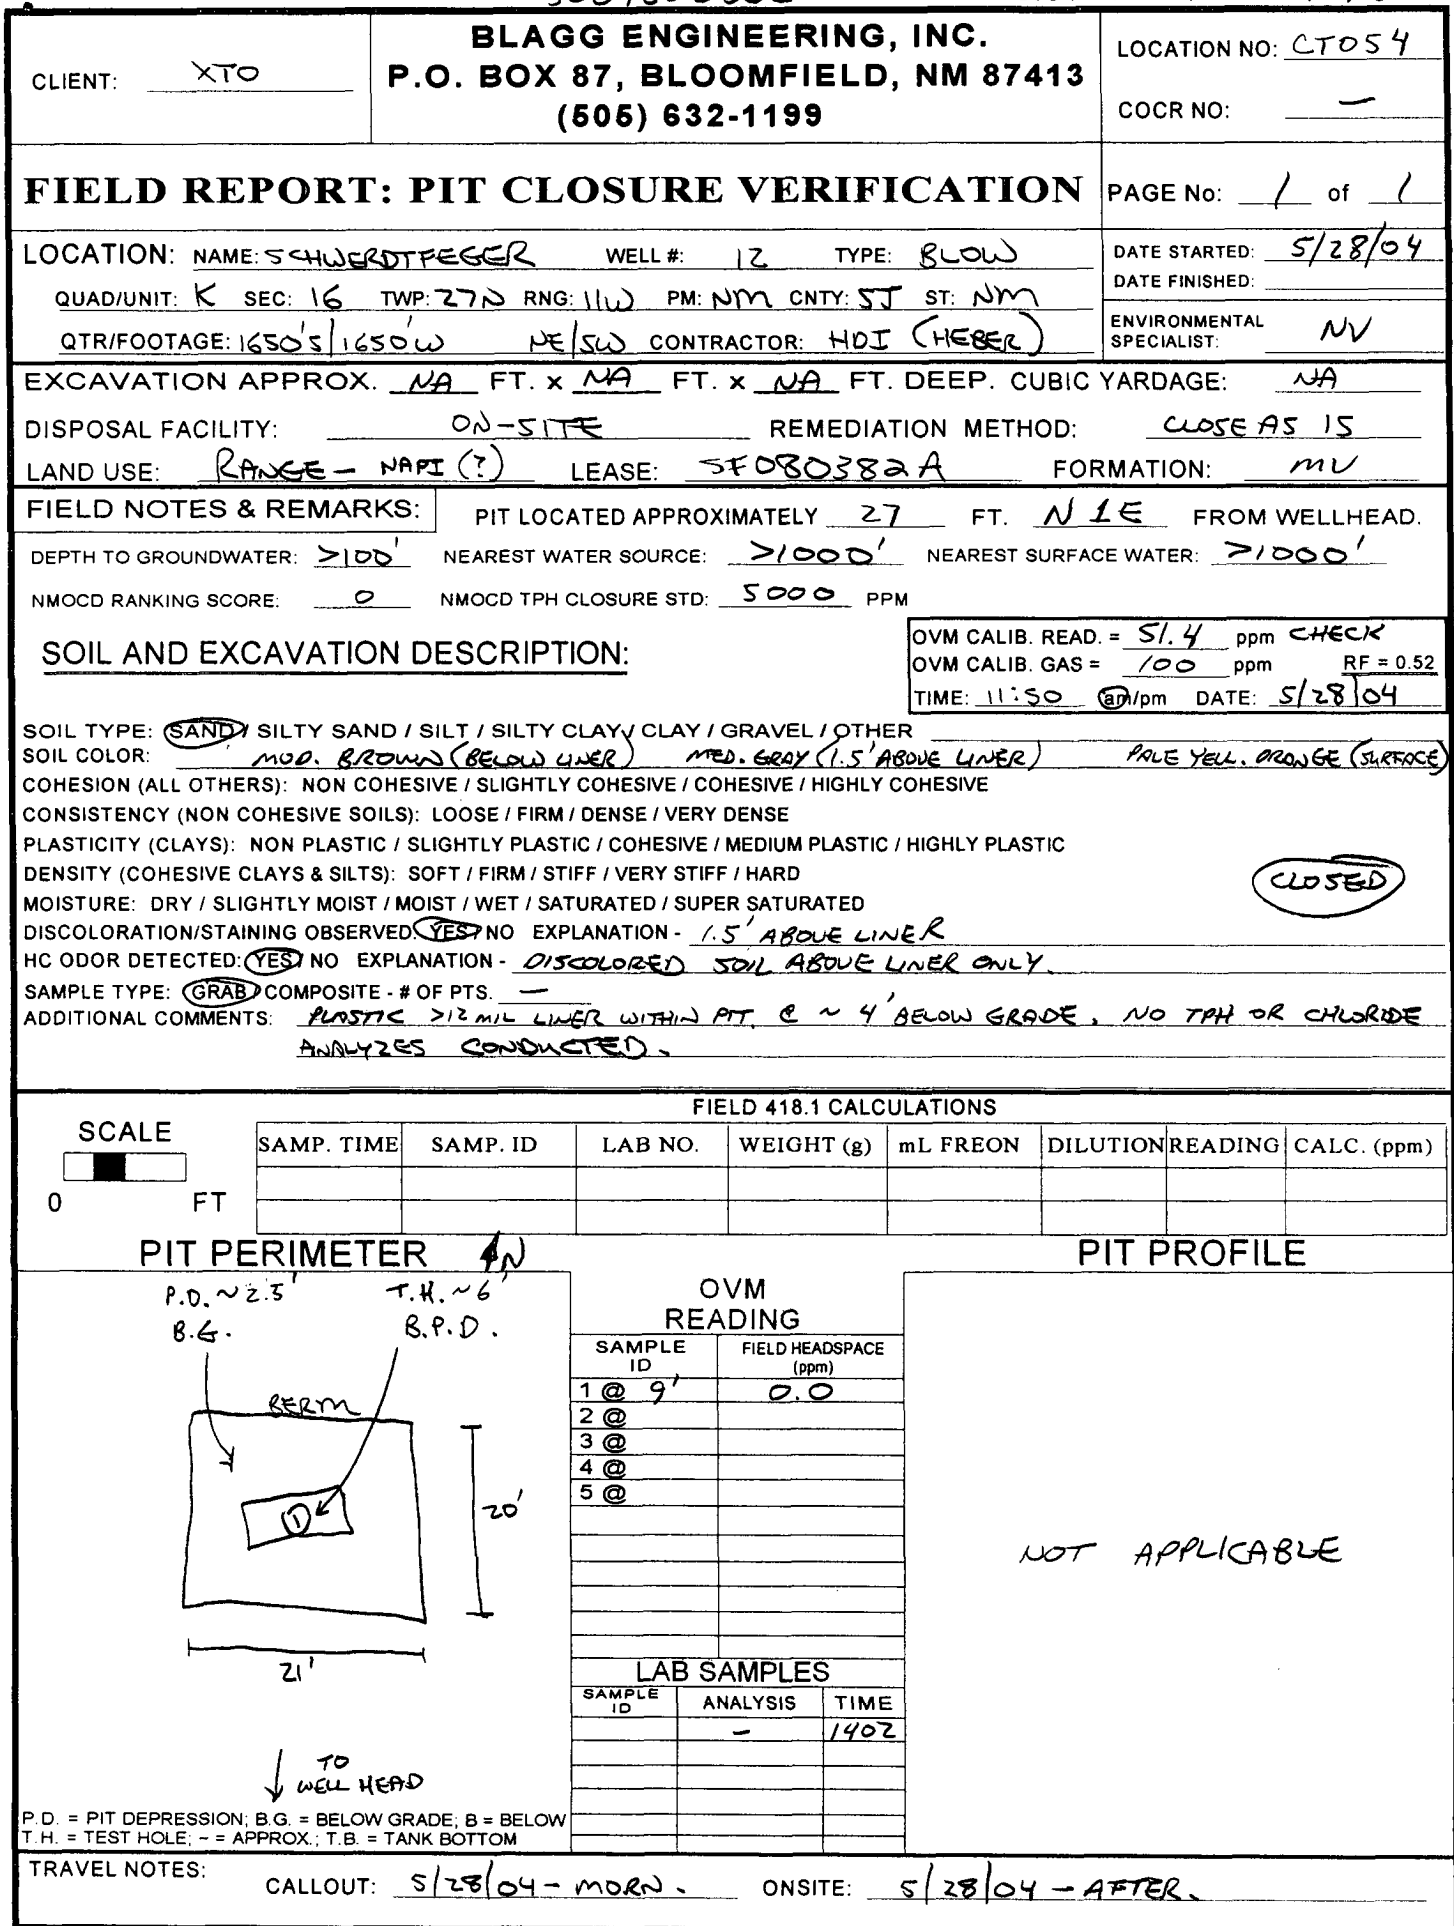 BLAGG ENGINEERING, INC.
P.O. BOX 87, BLOOMFIELD, NM 87413
(505) 632-1199
CLIENT: XTO
LOCATION NO: CT054
COCR NO: —
FIELD REPORT: PIT CLOSURE VERIFICATION
PAGE No: 1 of 1
LOCATION: NAME: SCHWERDTFEGER WELL #: 12 TYPE: BLOW
QUAD/UNIT: K SEC: 16 TWP: 27N RNG: 11W PM: NM CNTY: SJ ST: NM
QTR/FOOTAGE: 1650'S/1650'W NE/SW CONTRACTOR: HDI (HEBER)
DATE STARTED: 5/28/04
DATE FINISHED:
ENVIRONMENTAL SPECIALIST: NV
EXCAVATION APPROX. NA FT. x NA FT. x NA FT. DEEP. CUBIC YARDAGE: NA
DISPOSAL FACILITY: ON-SITE REMEDIATION METHOD: CLOSE AS IS
LAND USE: RANGE - NAPI (?) LEASE: SF080382A FORMATION: MV
FIELD NOTES & REMARKS: PIT LOCATED APPROXIMATELY 27 FT. N1E FROM WELLHEAD.
DEPTH TO GROUNDWATER: >100' NEAREST WATER SOURCE: >1000' NEAREST SURFACE WATER: >1000'
NMOCD RANKING SCORE: 0 NMOCD TPH CLOSURE STD: 5000 PPM
SOIL AND EXCAVATION DESCRIPTION:
OVM CALIB. READ. = 51.4 ppm CHECK
OVM CALIB. GAS = 100 ppm RF = 0.52
TIME: 11:50 am/pm DATE: 5/28/04
SOIL TYPE: SAND / SILTY SAND / SILT / SILTY CLAY / CLAY / GRAVEL / OTHER
SOIL COLOR: MOD. BROWN (BELOW LINER) MED. GRAY (1.5' ABOVE LINER) PALE YELL. ORANGE (SURFACE)
COHESION (ALL OTHERS): NON COHESIVE / SLIGHTLY COHESIVE / COHESIVE / HIGHLY COHESIVE
CONSISTENCY (NON COHESIVE SOILS): LOOSE / FIRM / DENSE / VERY DENSE
PLASTICITY (CLAYS): NON PLASTIC / SLIGHTLY PLASTIC / COHESIVE / MEDIUM PLASTIC / HIGHLY PLASTIC
DENSITY (COHESIVE CLAYS & SILTS): SOFT / FIRM / STIFF / VERY STIFF / HARD
CLOSED
MOISTURE: DRY / SLIGHTLY MOIST / MOIST / WET / SATURATED / SUPER SATURATED
DISCOLORATION/STAINING OBSERVED: YES / NO EXPLANATION - 1.5' ABOVE LINER
HC ODOR DETECTED: YES / NO EXPLANATION - DISCOLORED SOIL ABOVE LINER ONLY.
SAMPLE TYPE: GRAB / COMPOSITE - # OF PTS. —
ADDITIONAL COMMENTS: PLASTIC >12 MIL LINER WITHIN PIT @ ~ 4' BELOW GRADE, NO TPH OR CHLORIDE
ANALYZES CONDUCTED.
FIELD 418.1 CALCULATIONS
SCALE
0 FT
SAMP. TIME SAMP. ID LAB NO. WEIGHT (g) mL FREON DILUTION READING CALC. (ppm)
PIT PERIMETER N
PIT PROFILE
P.D. ~2.5' B.G.
T.H. ~6' B.P.D.
BERM
1
20'
21'
TO WELL HEAD
OVM READING
SAMPLE ID FIELD HEADSPACE (ppm)
1 @ 9' 0.0
2 @
3 @
4 @
5 @
NOT APPLICABLE
LAB SAMPLES
SAMPLE ID ANALYSIS TIME
— 1402
P.D. = PIT DEPRESSION; B.G. = BELOW GRADE; B = BELOW
T.H. = TEST HOLE; ~ = APPROX.; T.B. = TANK BOTTOM
TRAVEL NOTES: CALLOUT: 5/28/04 - MORN. ONSITE: 5/28/04 - AFTER.